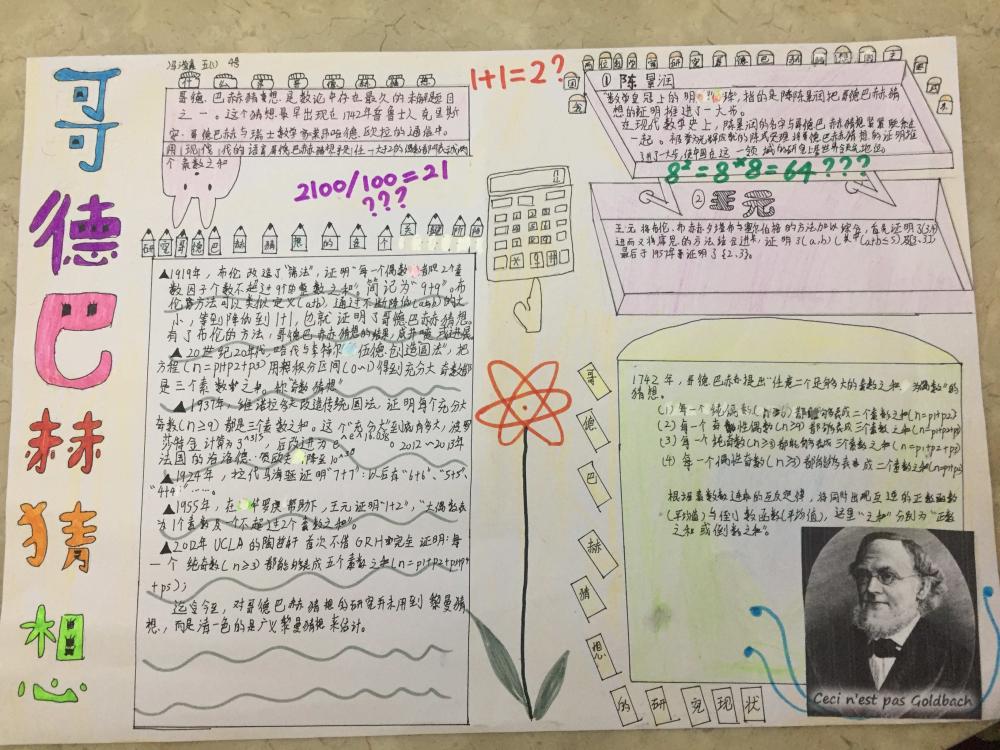 哥德巴赫猜想
冯 五(1) 4号
什么是哥德巴赫猜想
哥德巴赫猜想是数论中存在最久的未解题目
之一。这个猜想最早出现在1742年普鲁士人克里斯
安·哥德巴赫与瑞士数学家莱昂哈德·欧拉的通信中。
用现代的语言哥德巴赫猜想是任一大于2的偶数都可表示成两
个素数之和
1+1=2?
2100/100=21
???
研究哥德巴赫猜想的四个
▲1919年，布伦改造了"筛法"，证明"每一个偶数 2个素
数因子个数不超过9的整数之和"。简记为"9+9"。布
伦 方法可以类似定义(a+b)，通过不断降低(a,b)的大
小，等到降低到1+1，也就证明了哥德巴赫猜想。
有了布伦的方法，哥德巴赫猜想的结果
▲20世纪20年代，哈代与李特尔 创造圆法"，把
方程(n=p1+p2+p3)用 积分区间(0~1)得到充分大奇数都
是三个素数之和，称"奇数猜想"
▲1937年，维诺拉多夫改造传统圆法，证明每个充分大
奇数(n≥9)都是三个素数之和。这个"充分大"到底有多大，波罗
兹特金计算为3^315，后改进为e^e×16.038。2012~2013年
法国的 洛德· 降至10^30
▲1924年，拉代马海验证明"7+7"：以后有"6+6"、"5+5、
"4+4"……。
▲1955年，在华罗庚帮助下，王元证明"1+2"，"大偶数表
为1个素数及一个不超过2个素数之和"。
▲2012年UCLA的陶哲轩首次不借GRH 完全证明：每
一个纯奇数(n≥3)都能够表成五个素数之和(n=p1+p2+p3+p4
+p5)；
迄今至今，对哥德巴赫猜想的研究并未用到黎曼猜
想，而是清一色的是广义黎曼猜想来估计。
① 陈景润
"数学皇冠上的明珠"，指的是陈景润把哥德巴赫猜
想的证明推进了一大步。
在现代数学史上，陈景润的名字与哥德巴赫猜想紧紧联系在
一起。
8²=8×8=64???
② 王元
王元将布伦，布赫夕塔布与塞尔伯格的方法加以综合，首先证明了(3,4)
进而又将 的方法结合进来，证明了(a,b)(a+b≤5)及(3,3)
最后于1957年 证明了(2,3)。
1742年，哥德巴赫 提出"任意二个足够大的素数之和 为偶数"的
猜想。
(1)每一个纯偶数(n≥6)都能够表成二个素数之和(n=p1+p2)
(2)每一个奇 性偶数(n≥9)都够表成三个素数之和(n=p1+p2+p3)
(3)每一个纯奇数(n≥9)都能够表成三个素数之和(n=p1+p2+p3)
(4)每一个偶性奇数(n≥9)都能够表成二个素数之和(n=p1+p2)
根据素数 的互反定律，将同时出现互逆的正数函数
(平均值)与倒数函数(平均值)，这里"之和"分别为"正数
之和或倒数之和"。
哥德巴赫猜想
的研究现状
Ceci n'est pas Goldbach